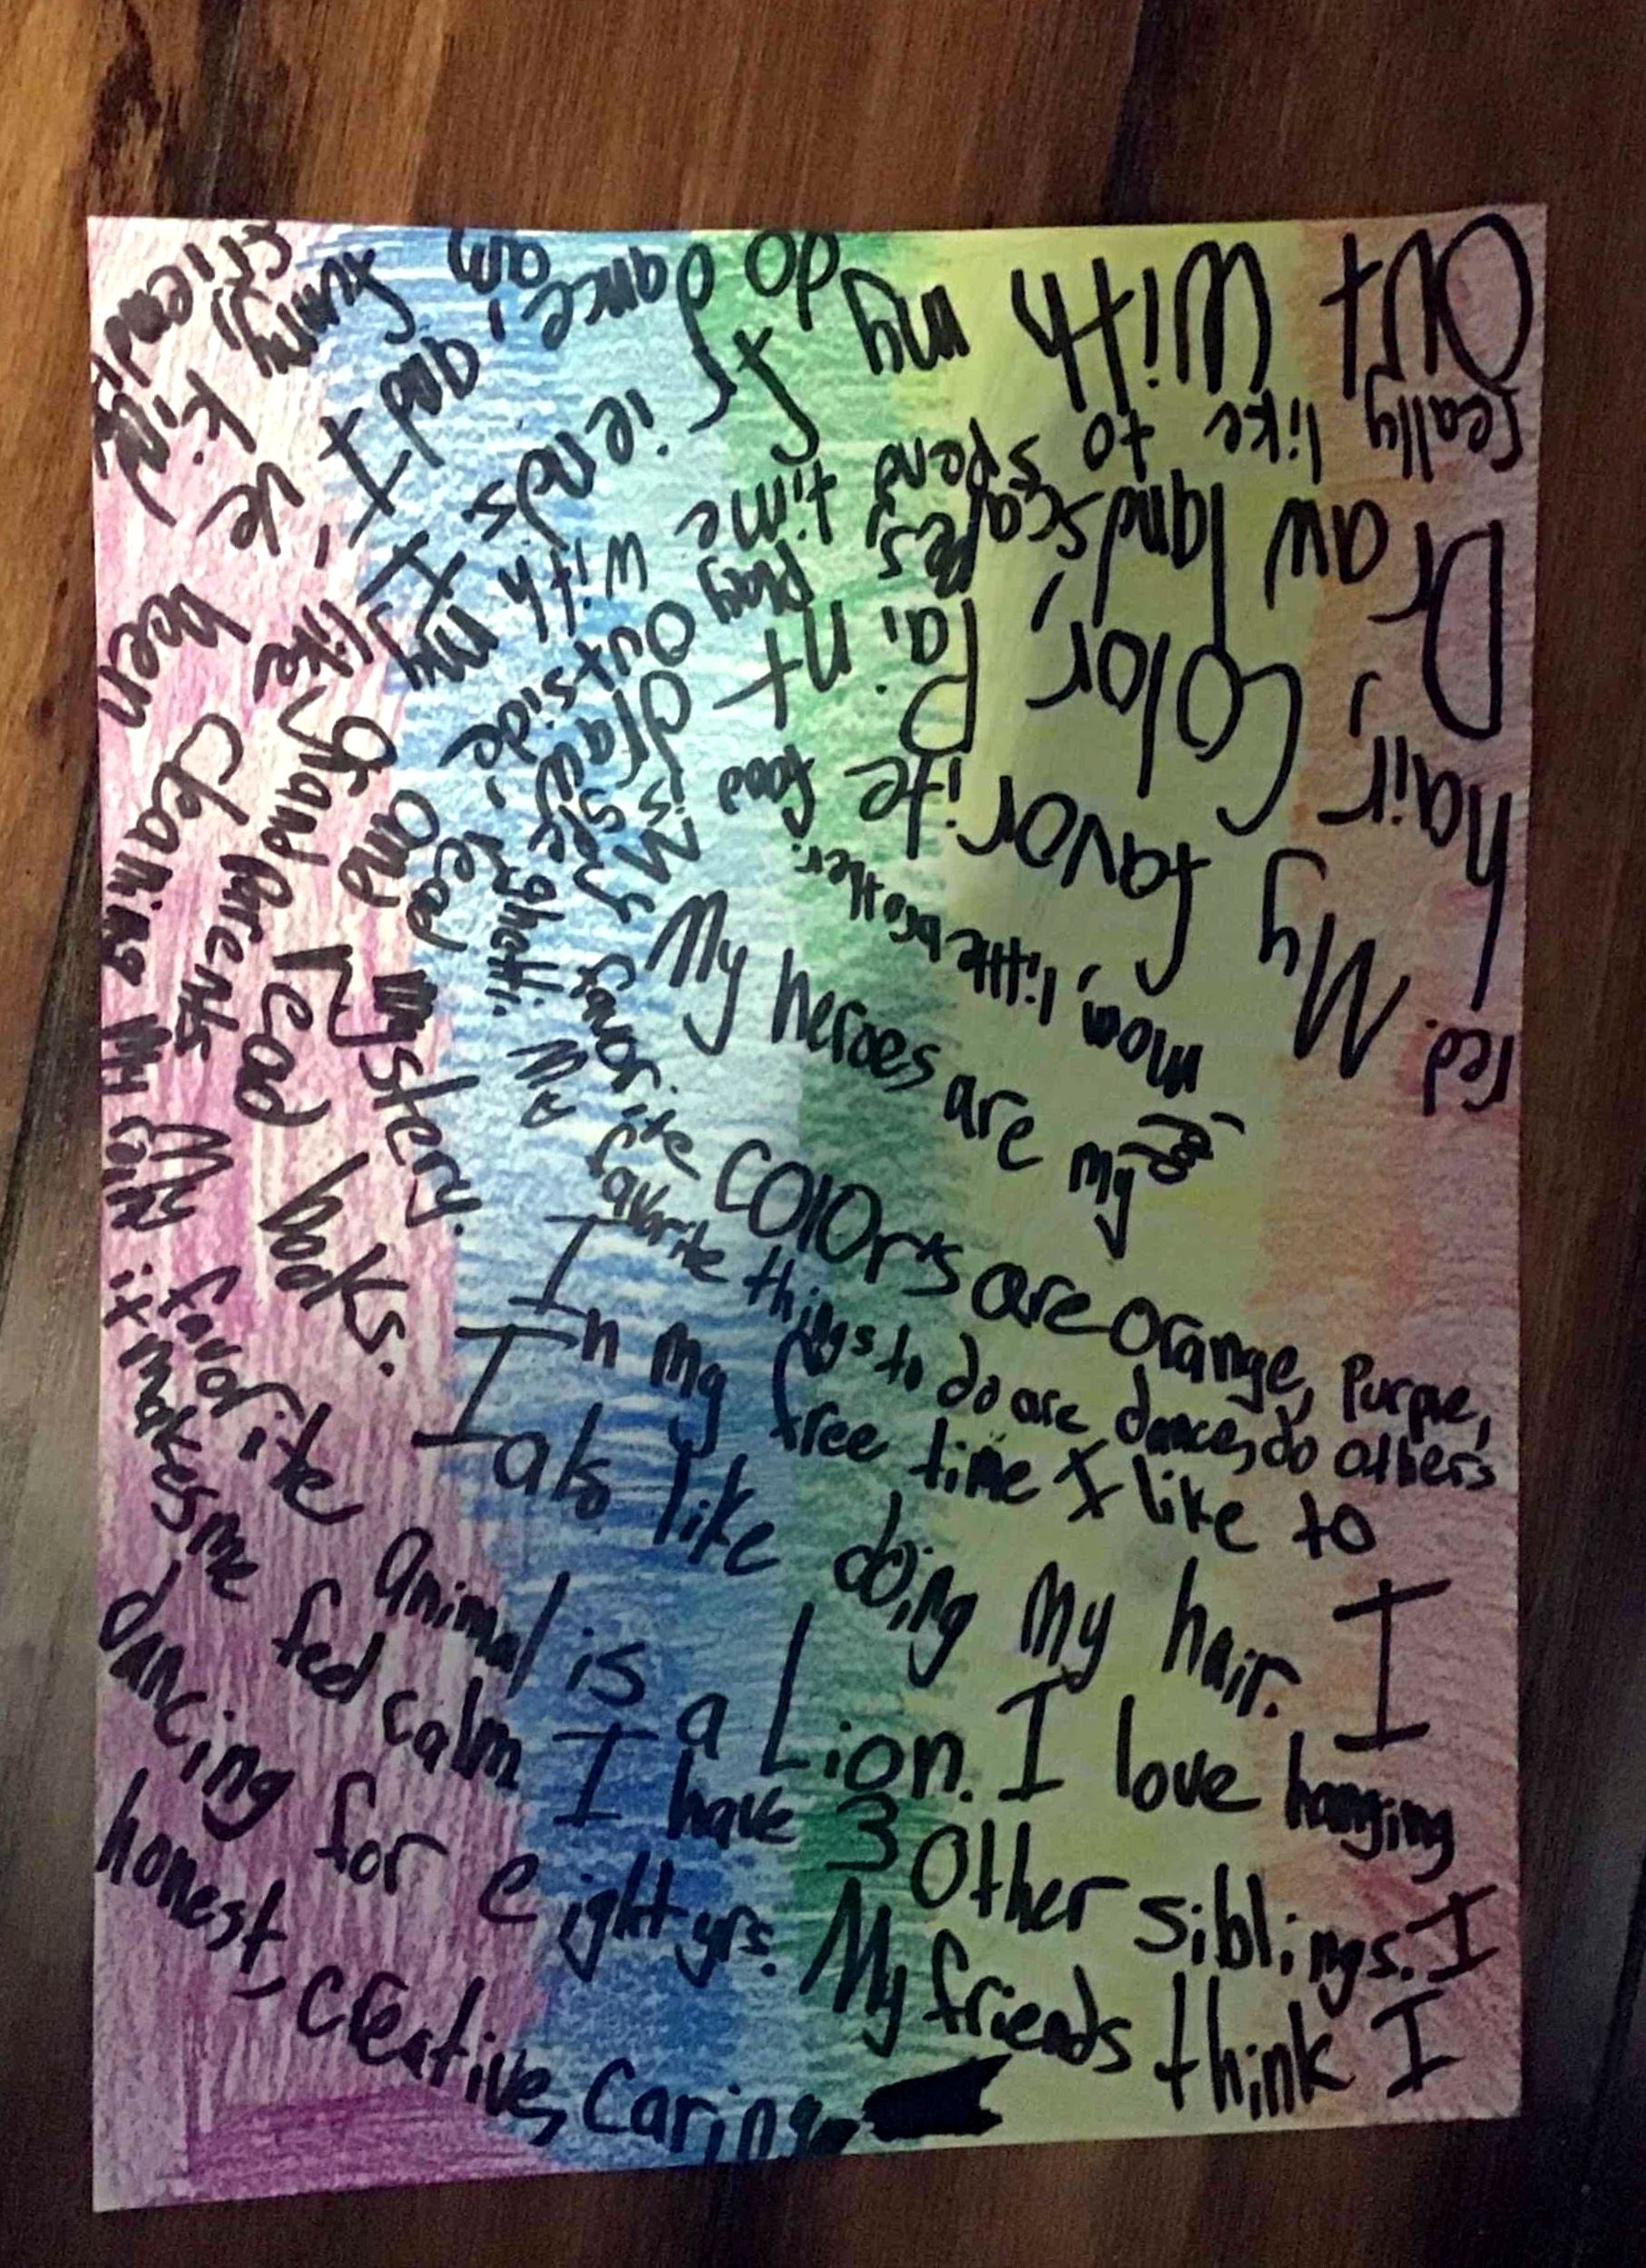 My heroes are my
mom, little brother.
My favorite colors are orange, Purple,
red. My favorite food is
spaghetti. My
favorite things to do are dances, do others
hair, Color, Paint
In my free time I like to
Draw landscapes play outside.
and read mystery.
I also like doing my hair. I
really like to spend time with my
Grand Parents
My favorite animal is a Lion. I love hanging
Out with my friends
I like
cleaning my
it makes me feel calm I have 3 other siblings. I
been
dancing for eight yrs. My friends think I
am funny
kind
honest, creative, Caring